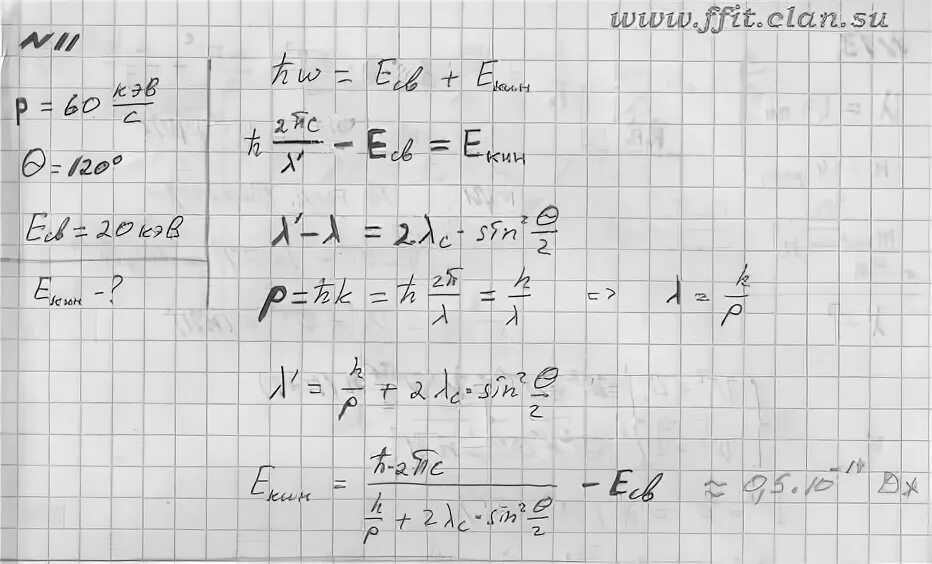 www.ffit.clan.su
N11
p = 60 кэВ/c
Θ = 120°
Eсв = 20 кэВ
Eкин - ?
ħω = Eсв + Eкин
ħ 2πc/λ' - Eсв = Eкин
λ' - λ = 2λc · sin² Θ/2
p = ħk = ħ 2π/λ = h/λ => λ = h/p
λ' = h/p + 2λc · sin² Θ/2
Eкин = ħ·2πc / (h/p + 2λc · sin² Θ/2) - Eсв ≈ 0,5·10⁻¹⁴ Дж